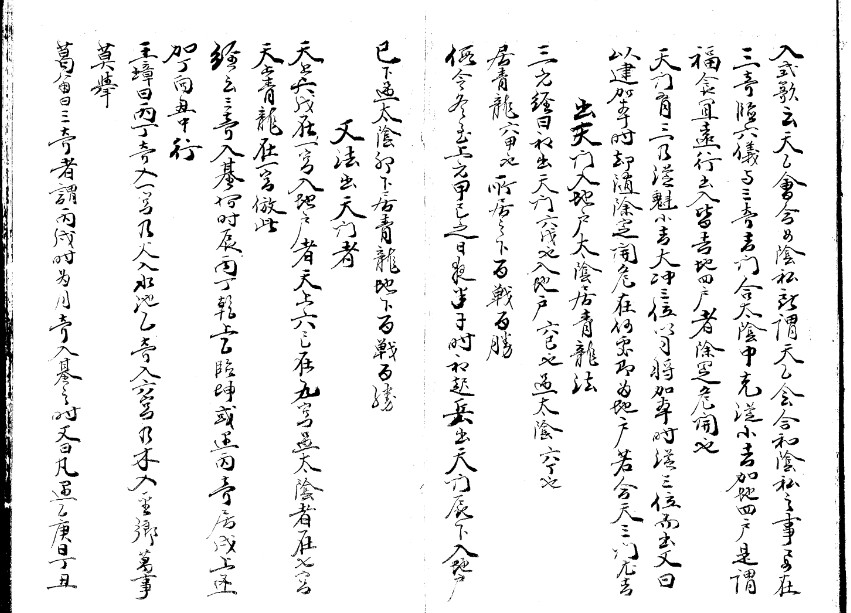 入式歌云天乙會合女陰私訣謂天乙会合和陰私之事宜在
三奇臨六儀与三奇吉門合太陰中充從小吉加地四戶是謂
福食冝遠行出入皆吉地四戶者除定危開也
天門有三乃從魁小吉大冲三位以月將加本時從三位而出又曰
以建加本時却隨除定開危在何處即為地戶若合天三門尤吉
出天門入地戶太陰居青龍法
三元經曰初出天門六戊也入地戶六巳也過太陰六丁也
居青龍六甲也所居之下百戰百勝
假令冬至上元甲己之日夜半子時初起出天門辰下入地戶
巳下過太陰卯下居青龍地下百戰百勝
又法出天門者
天上六戊在一宮入地戶者天上六己在九宮過太陰者在七宮
天上青龍在宮倣此
經云三奇入墓何時辰丙丁乾上乙臨坤或遇丙奇居戌上還
加丁向丑中行
王璋曰丙丁奇入一宮乃火入水池乙奇入六宮乃木入金鄉萬事
莫舉
葛曰三奇者謂丙戌時為月奇入墓之時又曰凡遇乙庚日丁丑